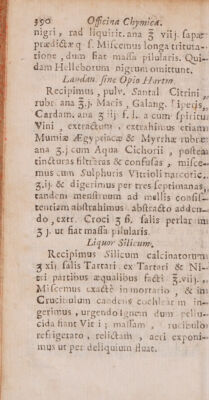 390 Officina Chymica.
nigri, rad liquirit. ana ʒ viij. sapæ
prædictæ q s. Miscemus longa tritura-
tione, dum fiat massa pilularis. Qui-
dam Helleborum nigrum omittunt.
Laudan. sine Opio Hartm.
Recipimus, pulv. Santal Citrini,
rubr ana ʒ.j. Macis, Galang.
Cardam. ana ʒ iij f. l. a cum spiritu
Vini, extractum, extrahimus etiam
Mumiæ Ægyptiacæ & Myrrhæ rubræ
ana ʒ.j cum Aqua Cichorii, postea
tincturas filtratas & confusas, misce-
mus cum Sulphuris Vitrioli narcotic.
ʒ.ij. & digerimus per tres septimanas,
tandem menstruum ad mellis consis-
tentiam abstrahimus abstracto adden-
do, extr. Croci ʒ ß. salis perlar m
ʒ j. ut fiat massa pilularis.
Liquor Silicum.
Recipimus Silicum calcinatorum
ʒ xij salis Tartari ex Tartari & Ni-
tri partibus æqualibus facti ʒ.viij.
Miscemus exactè in mortario, & in
Crucibulum candens cochleatim in-
gerimus, urgendo ignem dum pellu-
cida fiant Vit i; massam, rucibulo
refrigerato, relictam, aeri exponi-
mus ut per deliquium fluat.